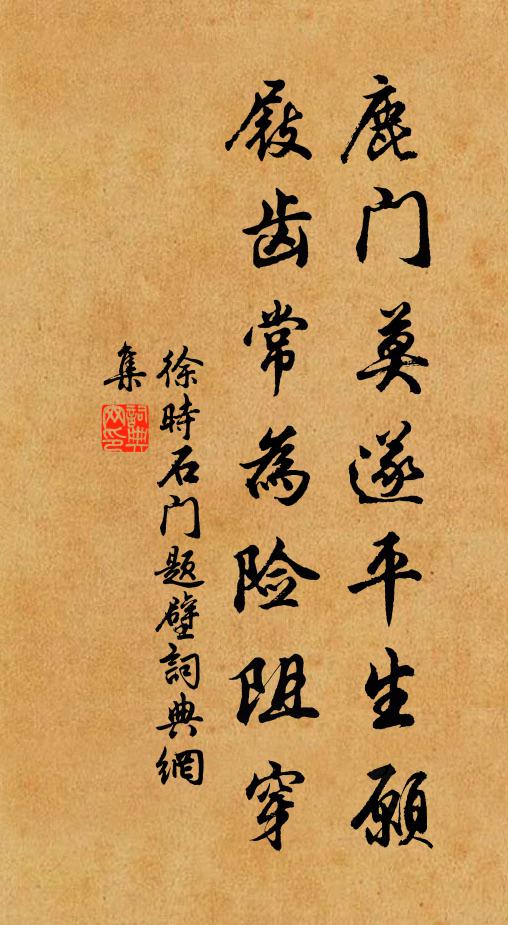 鹿门莫遂平生愿
屐齿常為险阻穿
徐時石门题壁詞典網
集
詞典
网印